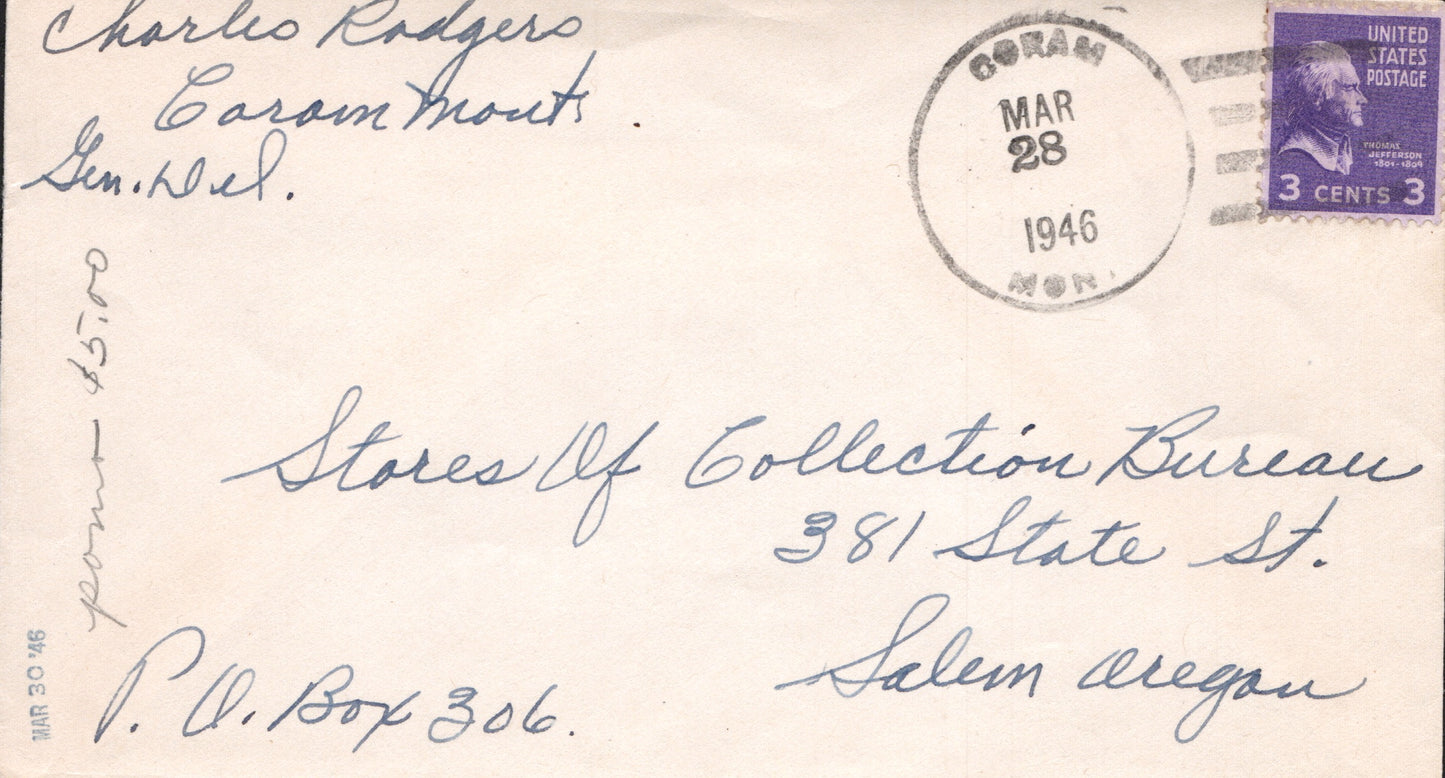 Charles Rodgers
Coram Mont.
Gen. Del.
CORAM
MAR
28
1946
MON.
UNITED
STATES
POSTAGE
THOMAS
JEFFERSON
1801-1809
3 CENTS 3
$5.00
Stores Of Collection Bureau
381 State St.
Salem Oregon
P. O. Box 306.
MAR 30 '46